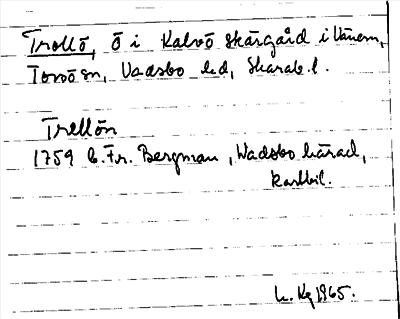 Trollö, ö i Kalvö skärgård i Vänern,
Torsö sn, Vadsbo hd, Skarab. l.
Trollön
1759 C. Fr. Bergman, Wadsbo härad,
kartbil.
L. Kg 1965.